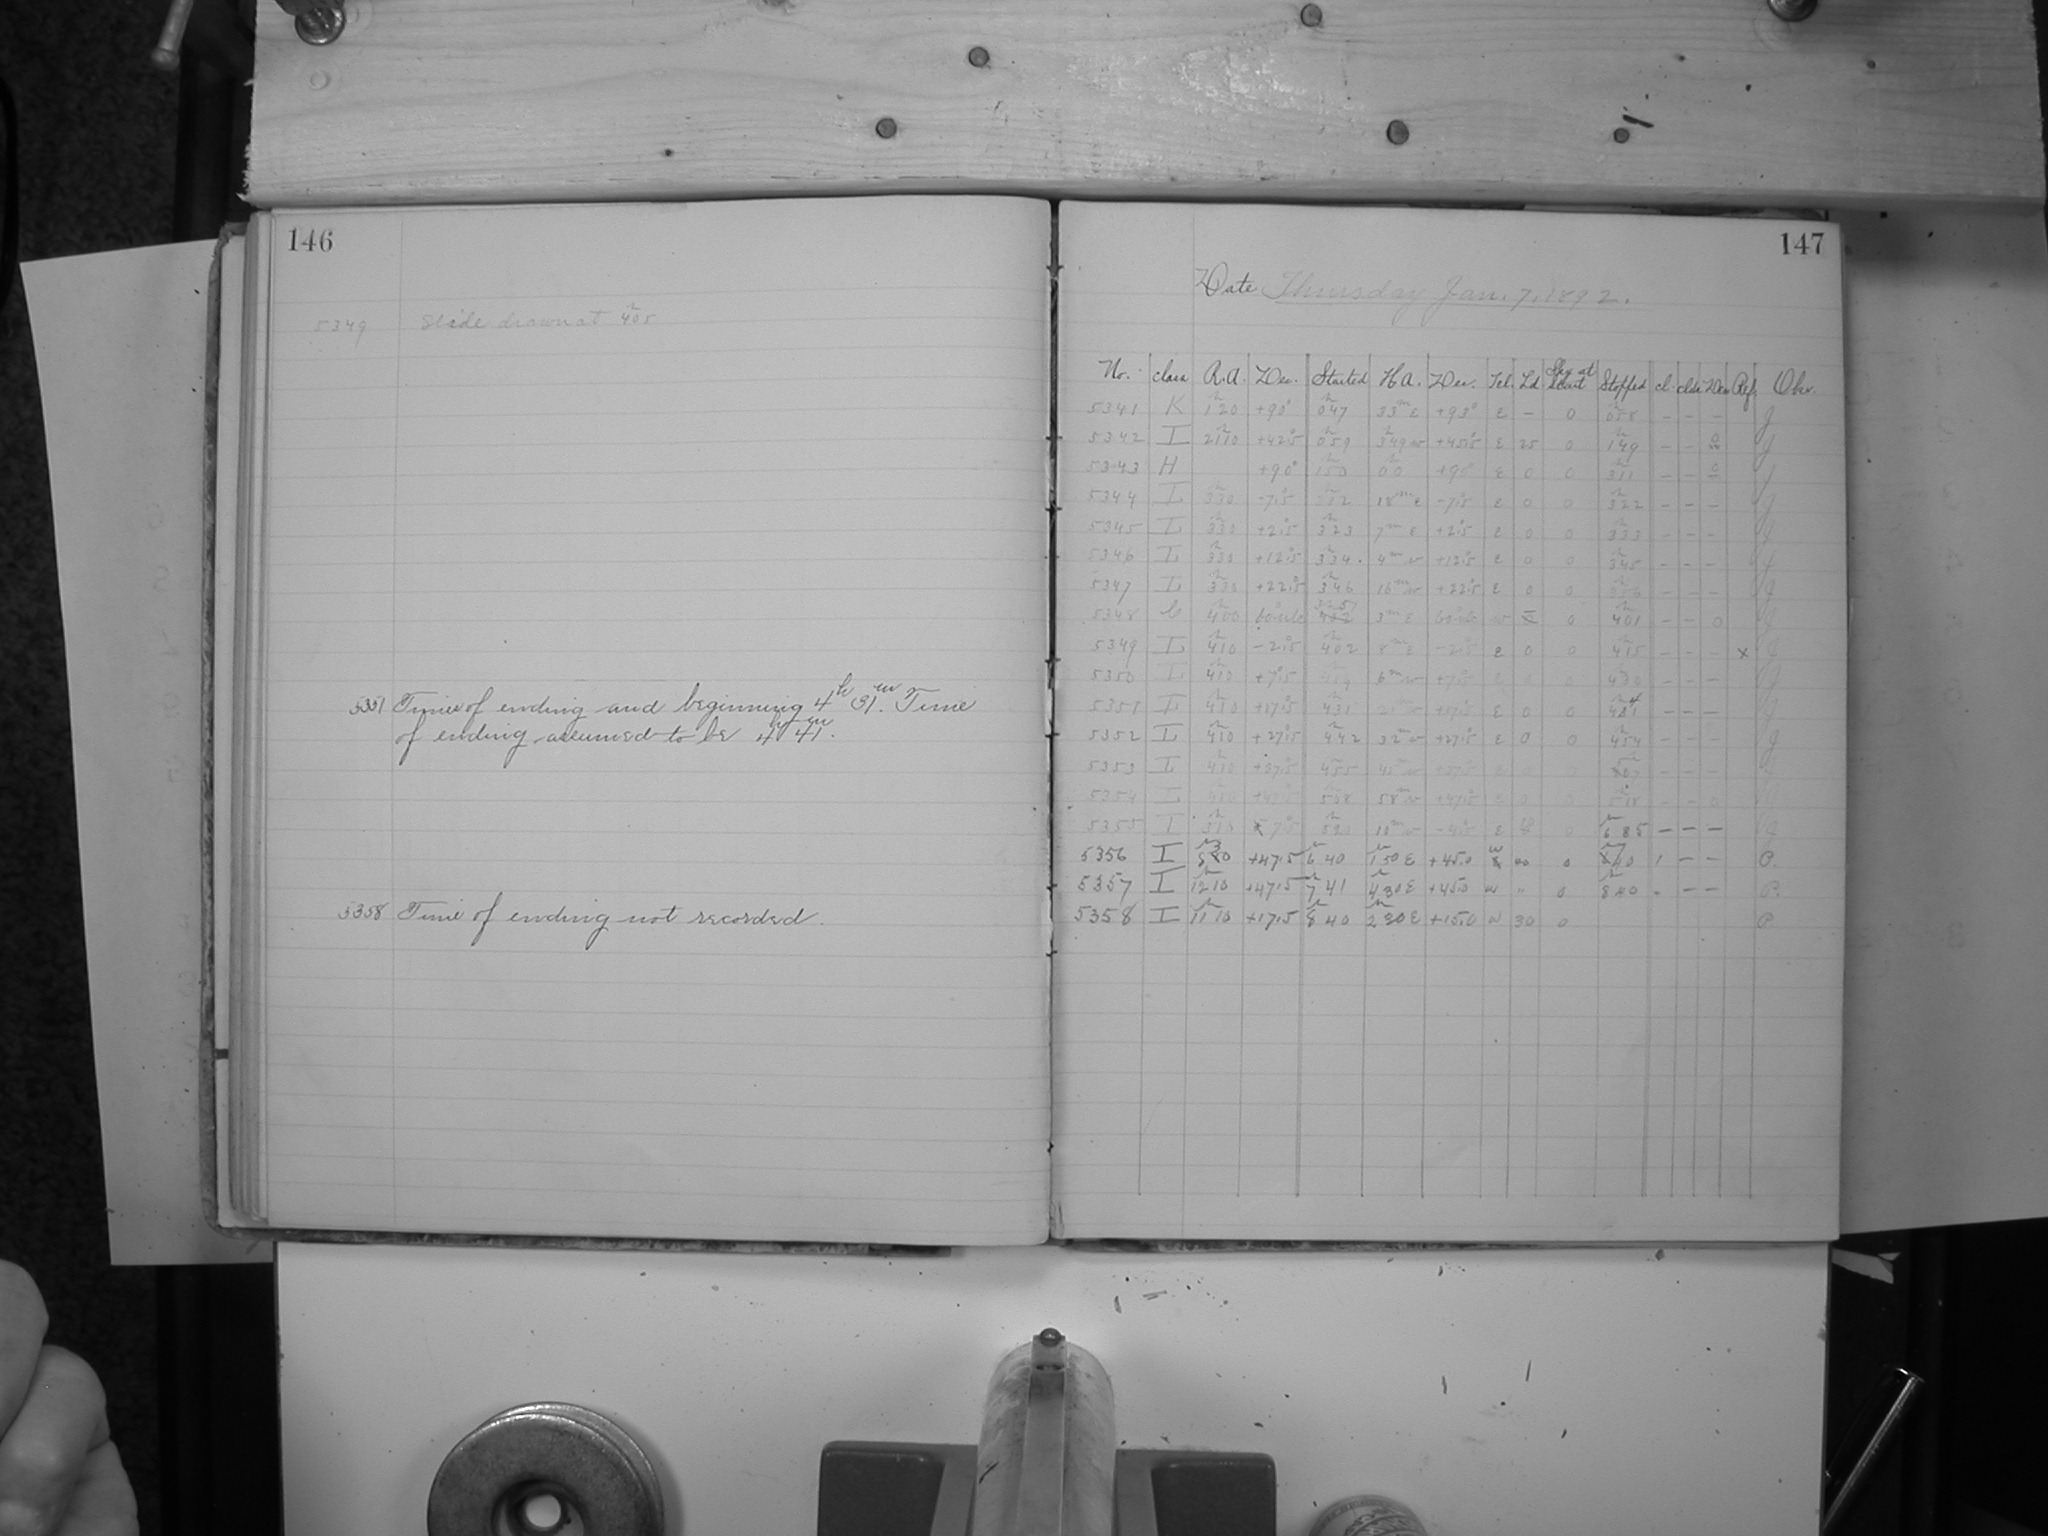 146
5349 Slide drawn at 4h05
5351 Times of ending and beginning 4h 31m. Time
of ending assumed to be 4h 41m.
5358 Time of ending not recorded.
147
Date Thursday Jan. 7, 1892.
No. class R.A. Dec. Started H.A. Dec. Tel. Ld. Sky at start Stopped cl. clds Dew Ref. Obsr.
5341 K 1h20 +90° 0h47 33m E +93° E - 0 0h58 - - - J
5342 I 21h10 +42.5 0h59 3h49 w +45.5 E 25 0 1h49 - - J
5343 H +90° 1h50 0h0 +90 E 0 0 3h11 - - J
5344 L 3h30 -7.5 18m E -7.5 E 0 0 3h22 - - - J
5345 L 3h30 +2.5 3h23 7m E +2.5 E 0 0 3h33 - - - J
5346 L 3h30 +12.5 3h34 4m w +12.5 E 0 0 3h45 - - - J
5347 L 3h30 +22.5 3h46 16m w +22.5 E 0 0 - - - J
5348 4h00 3m E w 0 4h01 - - 0 J
5349 L 4h10 -2.5 4h02 8m E -2.5 E 0 0 4h15 - - - x J
5350 L 4h10 +7.5 6m w +7.5 E 0 0 4h30 - - - J
5351 L 4h10 +17.5 4h31 21m w +17.5 E 0 0 - - - J
5352 L 4h10 +27.5 4h42 32m w +27.5 E 0 0 4h54 - - - J
5353 L 4h10 +37.5 4h55 45m w +37.5 E 0 0 5h07 - - -
5354 L 4h10 +47.5 5h08 58m w +47.5 E 0 0 5h18 - - 0
5355 I 7.5 5h20 10m w -4.5 E 0 6h35 - - - J
5356 I +47.5 6h40 1h50 E +45.0 w 0 1 - - P.
5357 I 12h10 +47.5 7h41 4h30 E +45.0 w " 0 8h40 - - P.
5358 I 11h10 +17.5 8h40 2h30 E +15.0 w 30 0 P